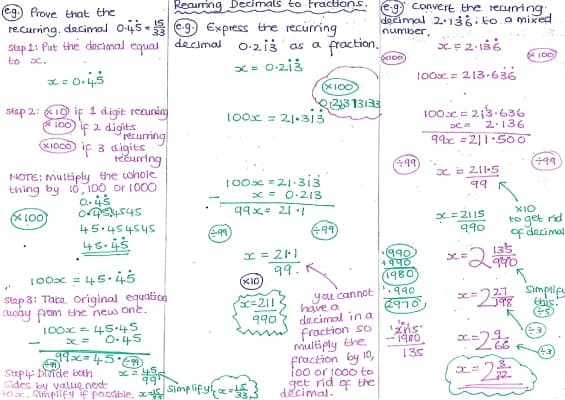 Recurring Decimals to fractions.
e.g. Prove that the
recurring decimal 0.4̇5̇ = 15/33
step 1: Put the decimal equal
to x.
x = 0.4̇5̇
step 2: x10 if 1 digit recurring
x100 if 2 digits
recurring
x1000 if 3 digits
recurring
NOTE: multiply the whole
thing by 10, 100 or 1000
0.4̇5̇
x100 0.454545
45.454545
45.4̇5̇
100x = 45.4̇5̇
step 3: Take original equation
away from the new one.
100x = 45.45
- x = 0.45
99x = 45.
÷99 ÷99
Step 4: Divide both x = 45/99
sides by value next
to x. Simplify if possible. x = 15/33
Simplify x = 15/33
e.g. Express the recurring
decimal 0.21̇3̇ as a fraction.
x = 0.21̇3̇
x100
0.21313133
100x = 21.31̇3̇
100x = 21.31̇3̇
- x = 0.213
99x = 21.1
÷99 ÷99
x = 21.1/99.
x10
x = 211/990
you cannot
have a
decimal in a
fraction so
multiply the
fraction by 10,
100 or 1000 to
get rid of the
decimal.
e.g. Convert the recurring
decimal 2.13̇6̇. to a mixed
number.
x = 2.13̇6̇
x100 x100
100x = 213.63̇6̇
100x = 213.636
x = 2.136
99x = 211.500
÷99 ÷99
x = 211.5/99
x10
to get rid
of decimal
x = 2115/990
990
+990
1980
+990
2970
x = 2 135/990
Simplify
this.
÷5
x = 2 27/198
÷3
2115
-1980
135
x = 2 9/66
÷3
x = 2 3/22